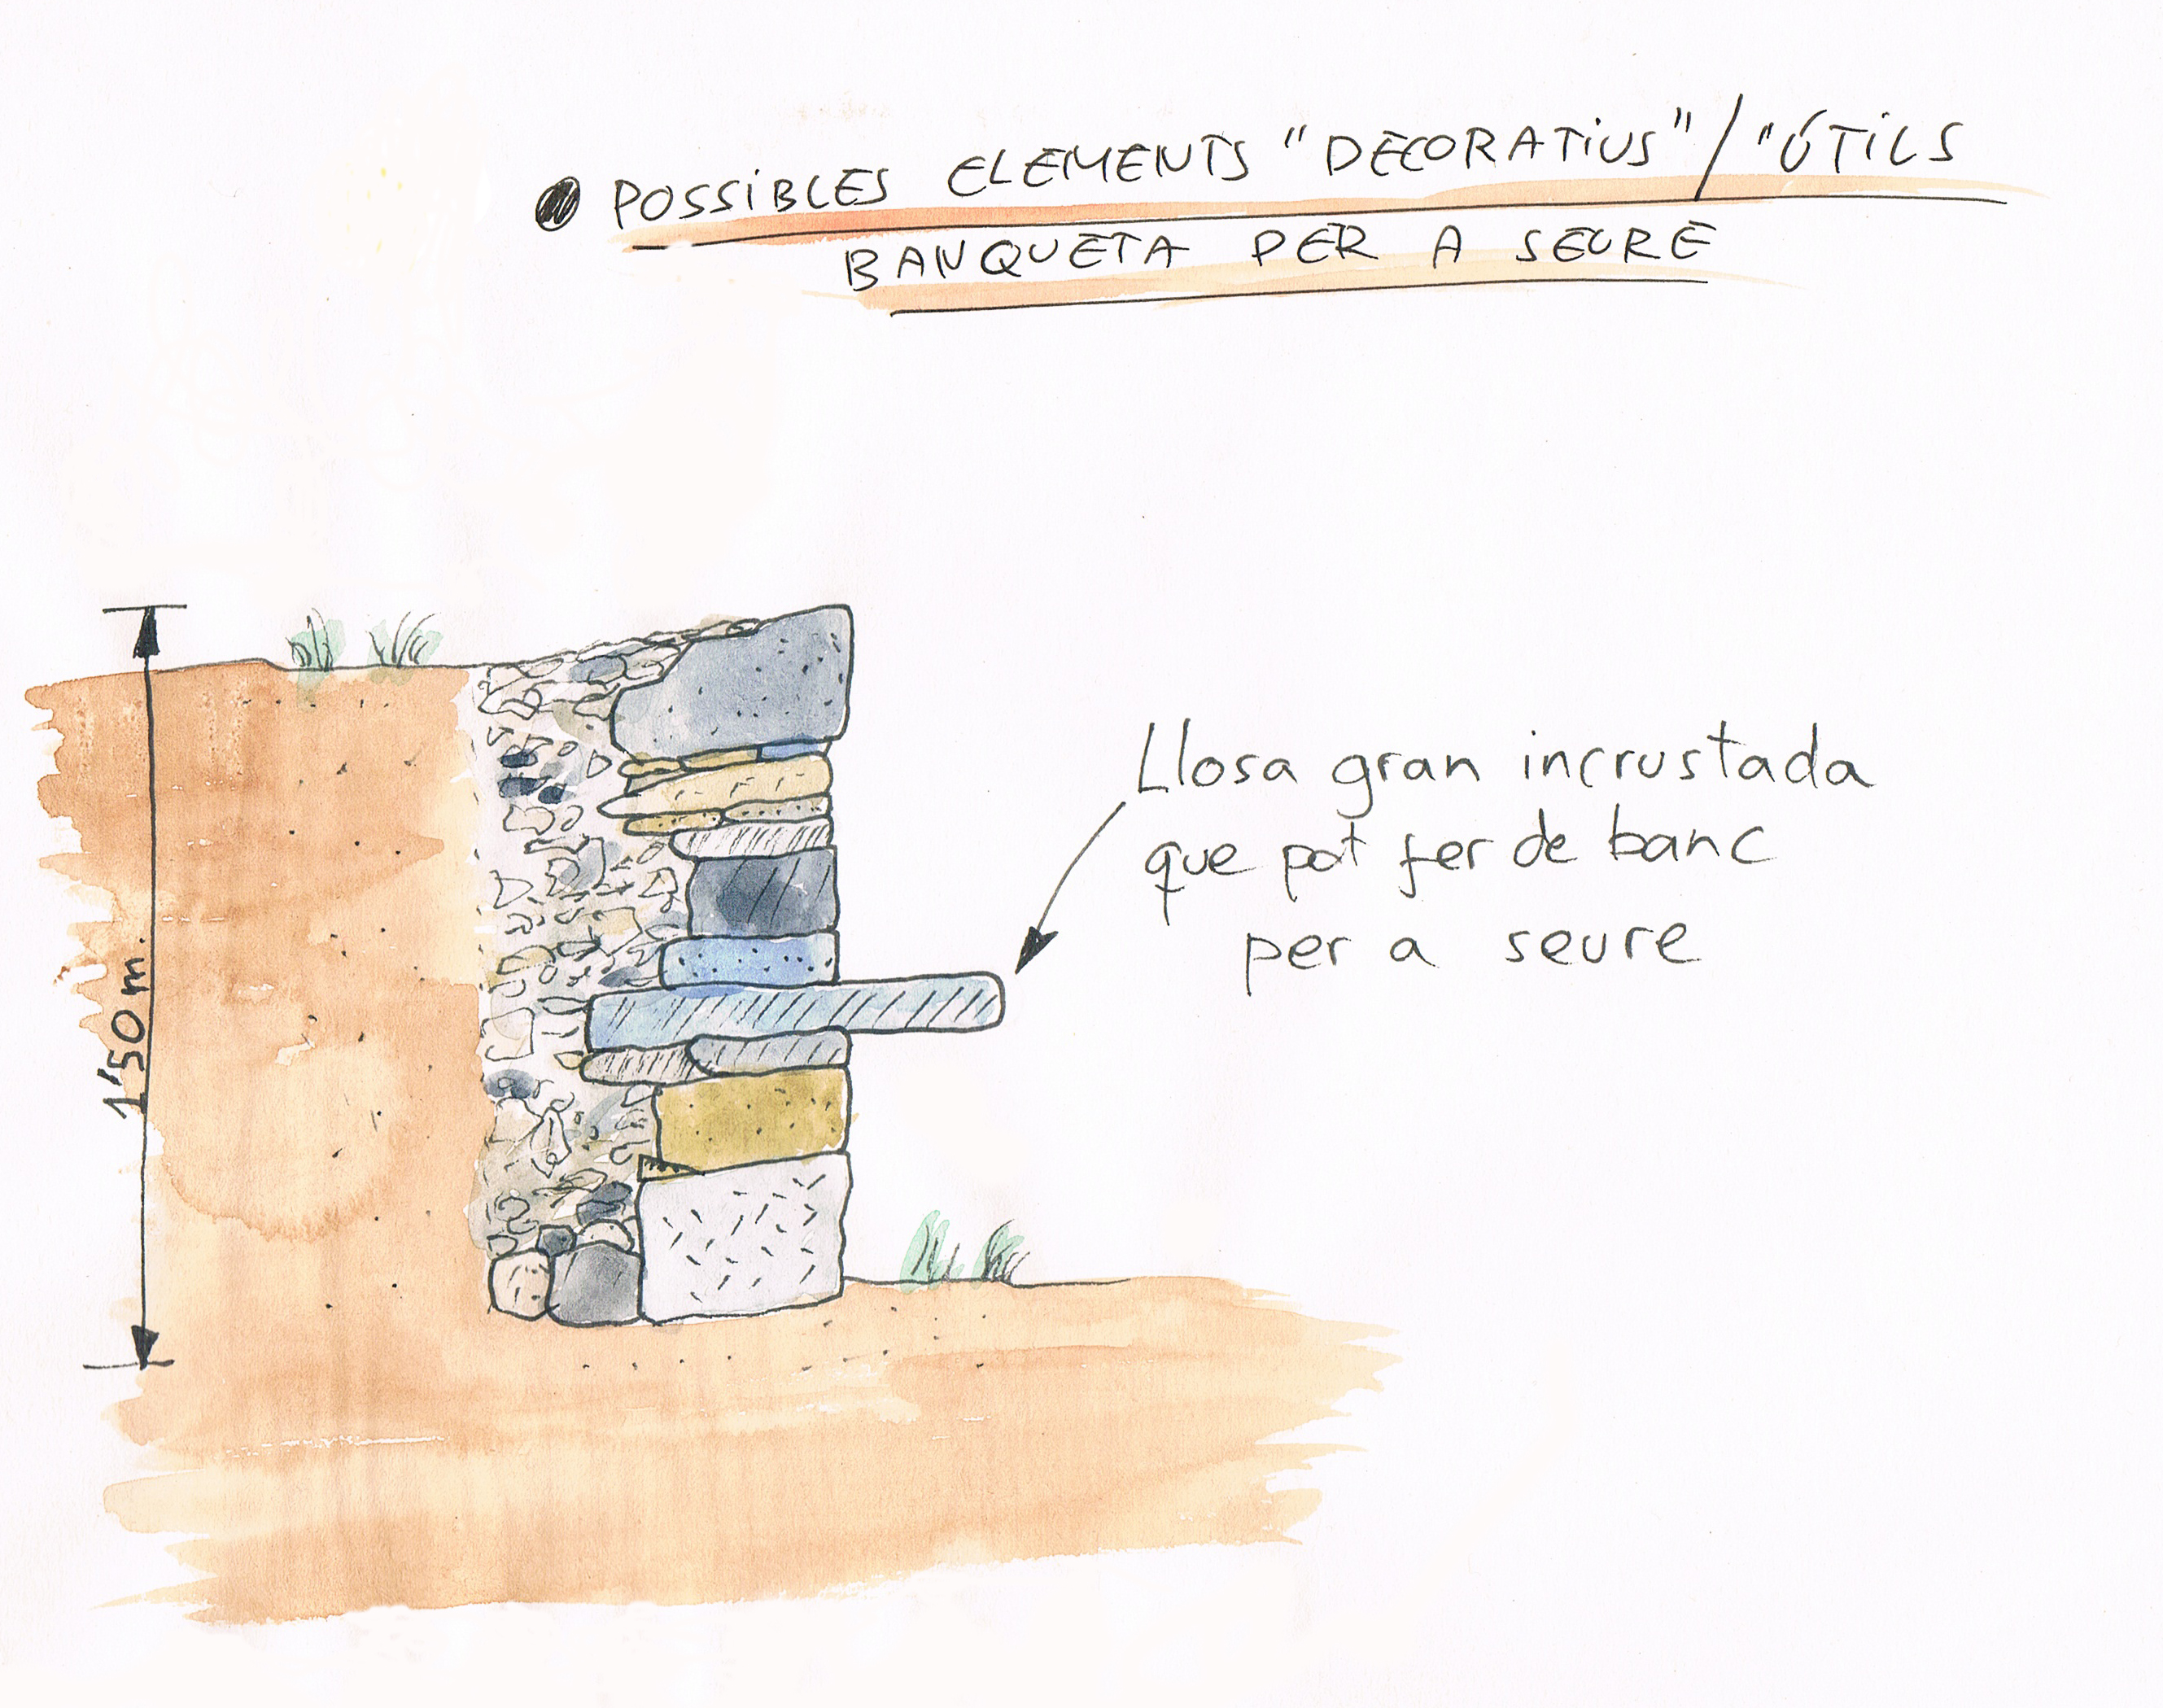 POSSiBLES ELEMENTS "DECORATiUS" / "ÚTiLS
BANQUETA PER A SEURE
Llosa gran incrustada
que pot fer de banc
per a seure
1'50 m.